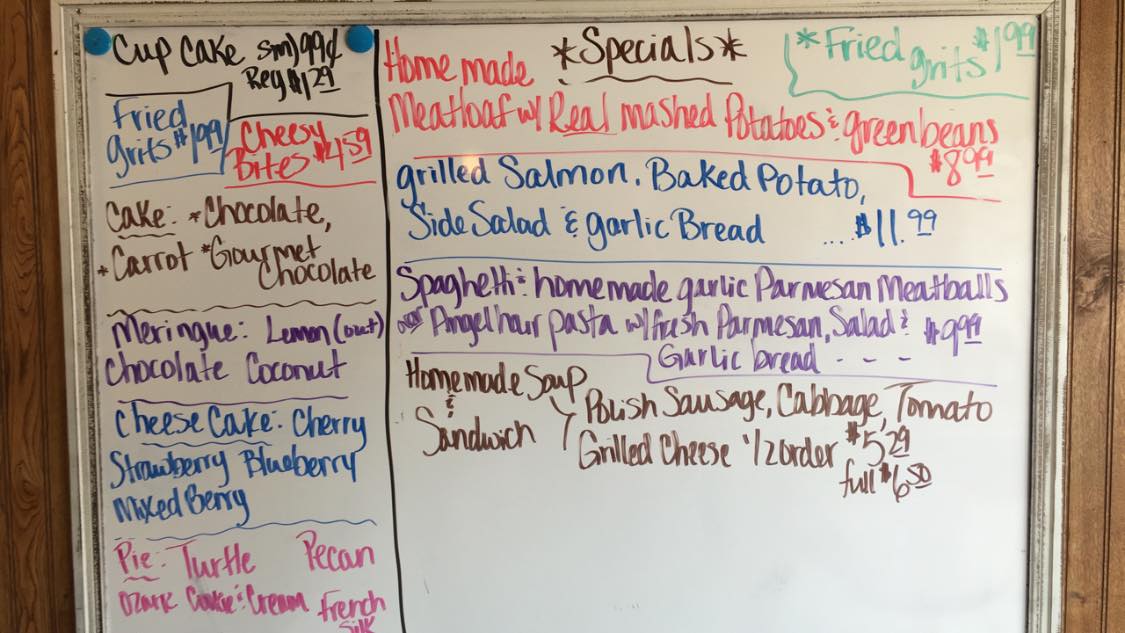 Cup Cake sm) 99¢
Reg $1.29
Fried
grits $1.99
Cheesy
Bites $4.59
Cake: *Chocolate,
*Carrot *Gourmet
Chocolate
Meringue: Lemon (out)
Chocolate Coconut
Cheese Cake: Cherry
Strawberry Blueberry
Mixed Berry
Pie: Turtle Pecan
Ozark Cookie & Cream French
silk
*Specials*
*Fried
grits $1.99
Home made
Meatloaf w/ Real mashed Potatoes & green beans
$8.99
grilled Salmon, Baked Potato,
Side Salad & garlic Bread .... $11.99
Spaghetti & homemade garlic Parmesan Meatballs
over Angel hair pasta w/ fresh Parmesan, Salad & $9.99
Garlic bread - - -
Homemade Soup
&
Sandwich
Polish Sausage, Cabbage, Tomato
Grilled Cheese 1/2 order $5.29
full $6.50